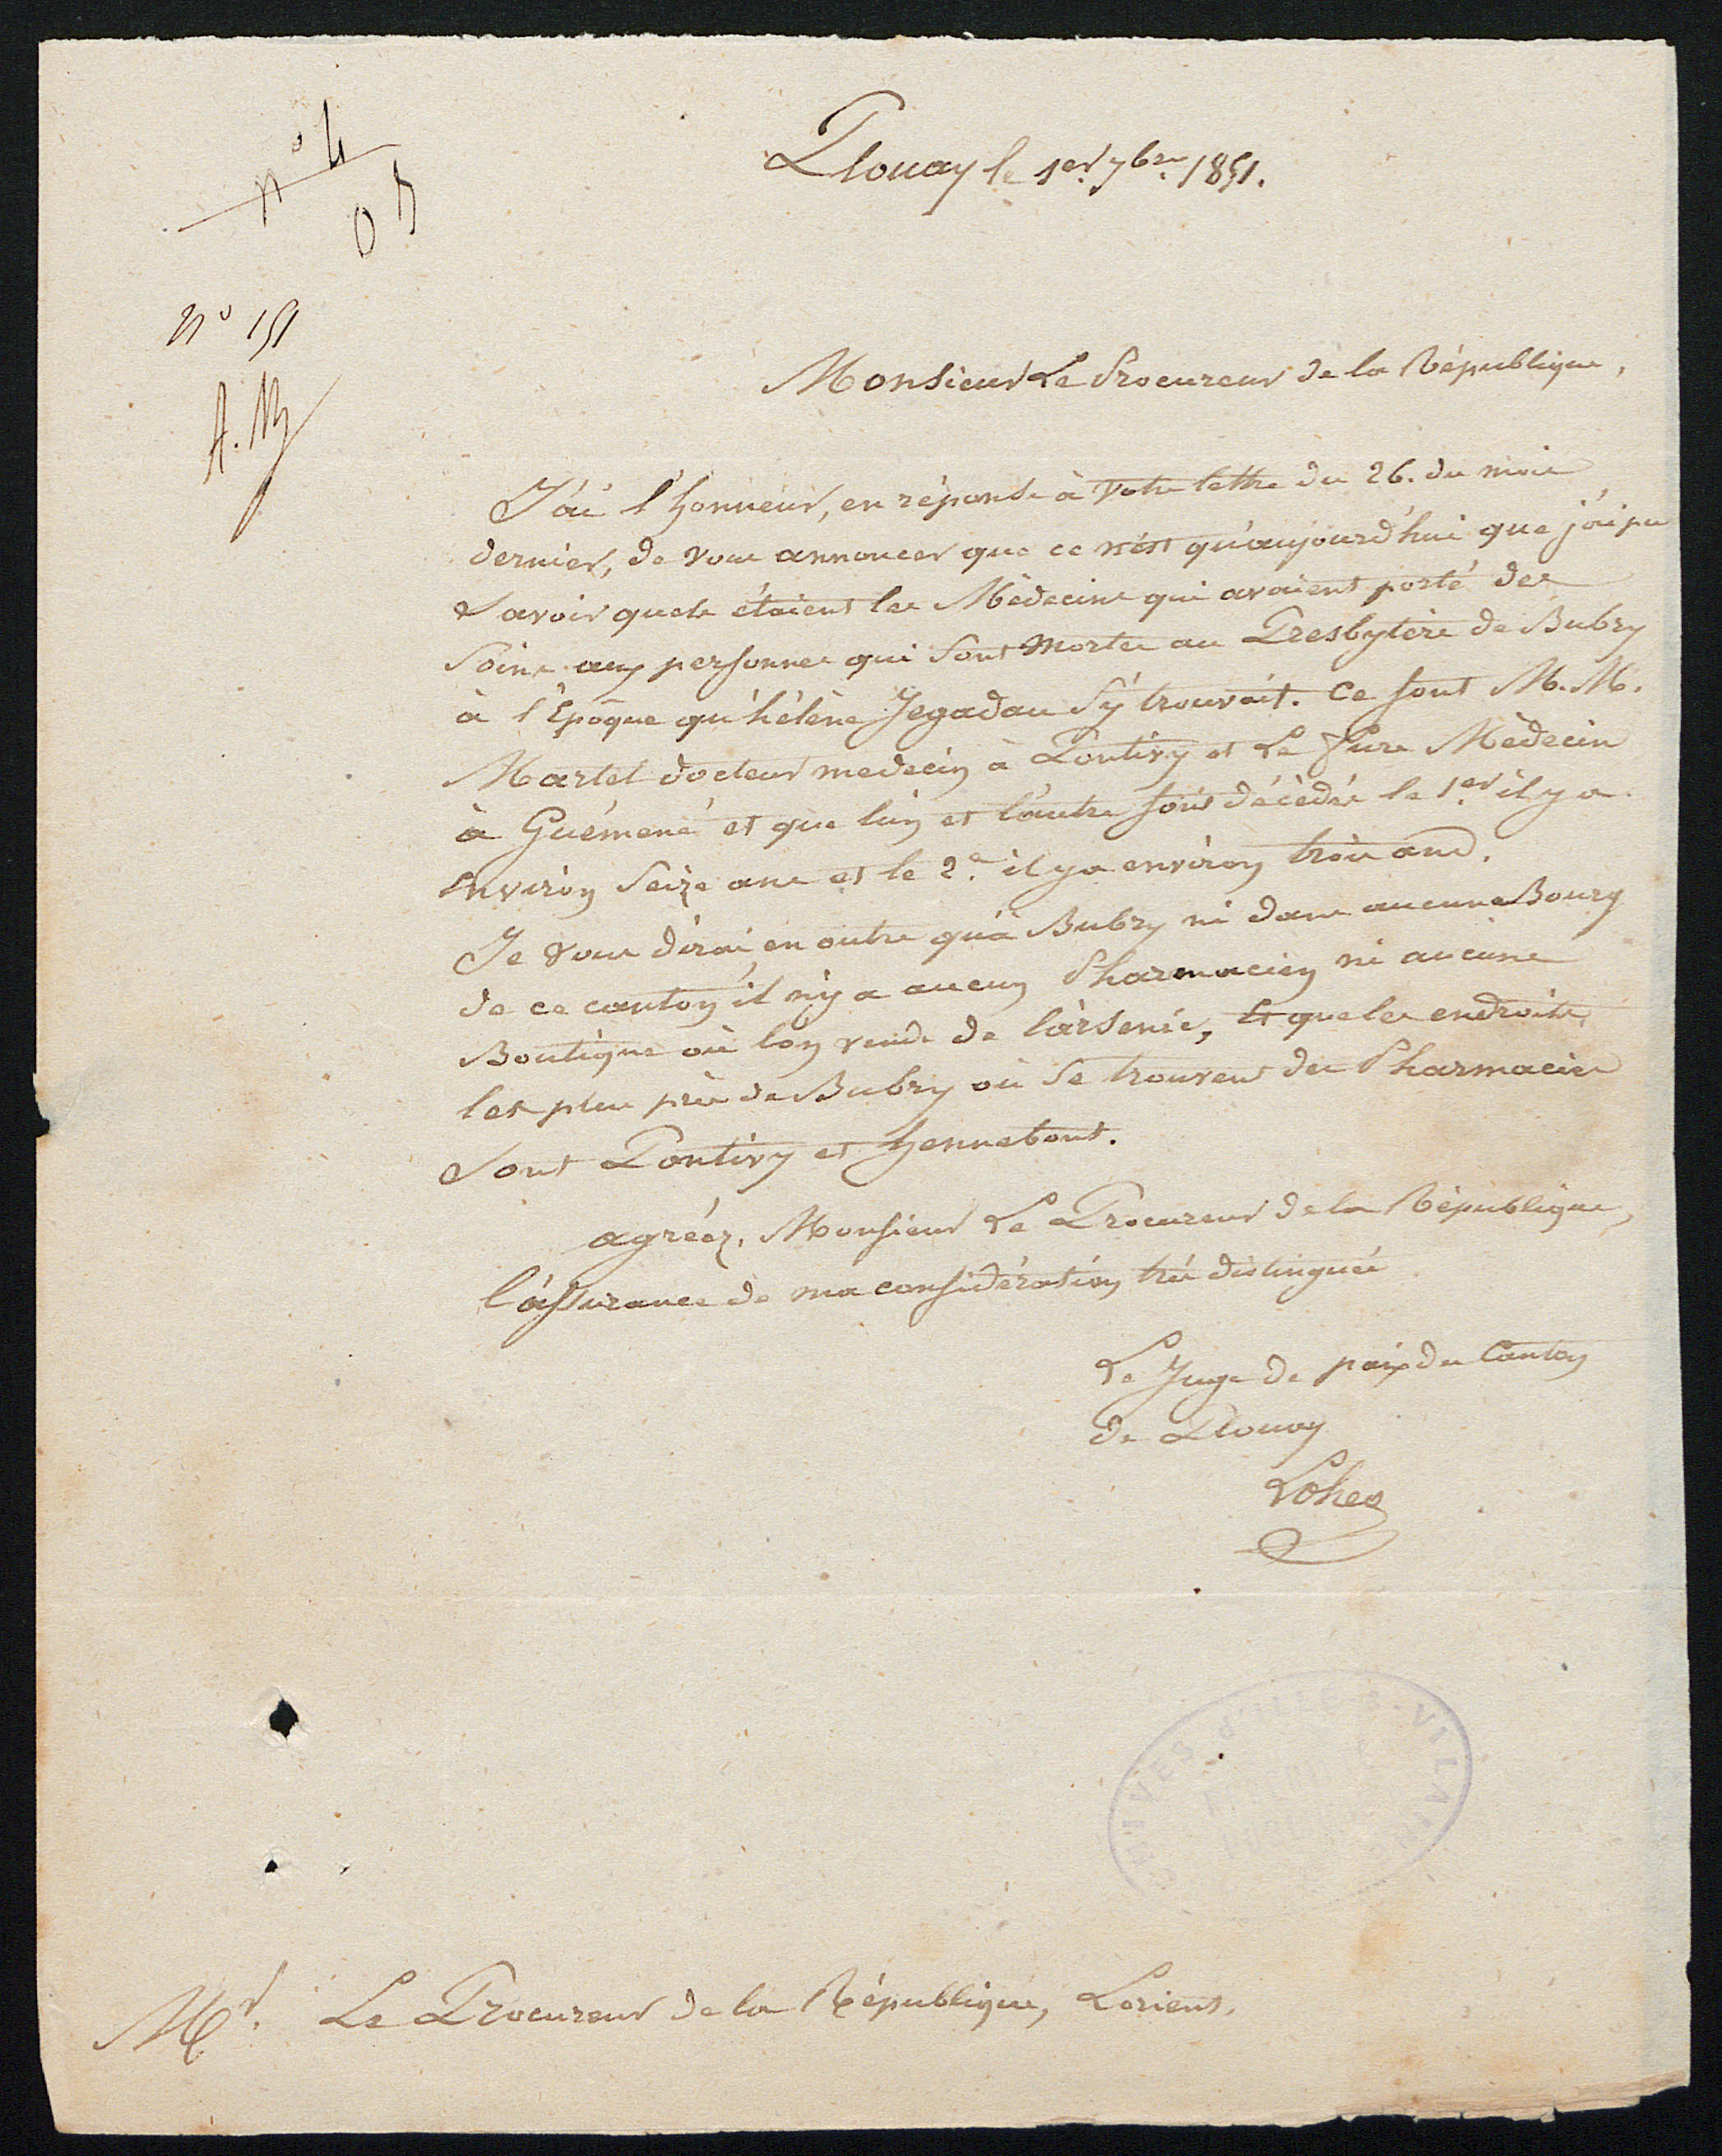 n° 4
Plouay le 1er. 7bre. 1851.
n° 151
A. M
Monsieur Le Procureur de la République,
J'ai l'honneur, en réponse à votre lettre du 26. du mois
dernier, de vous annoncer que ce n'est qu'aujourd'hui que j'ai pu
Savoir quels étaient les Médecins qui avaient porté des
Soins aux personnes qui Sont Mortes au Presbytère de Bubry
à l'Epoque qu'hélène Jegadau S'y trouvait. Ce sont M. M.
Martel docteur medecin à Pontivy et Le Médecin
à Guémené et que l'un et l'autre sont décédés le 1er. il y a
Environ Seize ans et le 2e. il y a environ trois ans.
Je vous dirai en outre qu'à Bubry ni dans aucune Bourg
de ce canton il n'y a aucun Pharmacien ni aucune
Boutique où l'on vend de l'arsenic, Et que les endroits
les plus près de Bubry où Se trouvent des Pharmacies
Sont Pontivy et hennebont.
agréez, Monsieur Le Procureur de la République,
l'assurance de ma considération très distinguée
Le Juge de paix du Canton
de Plouay
Mr. Le Procureur de la République, Lorient.